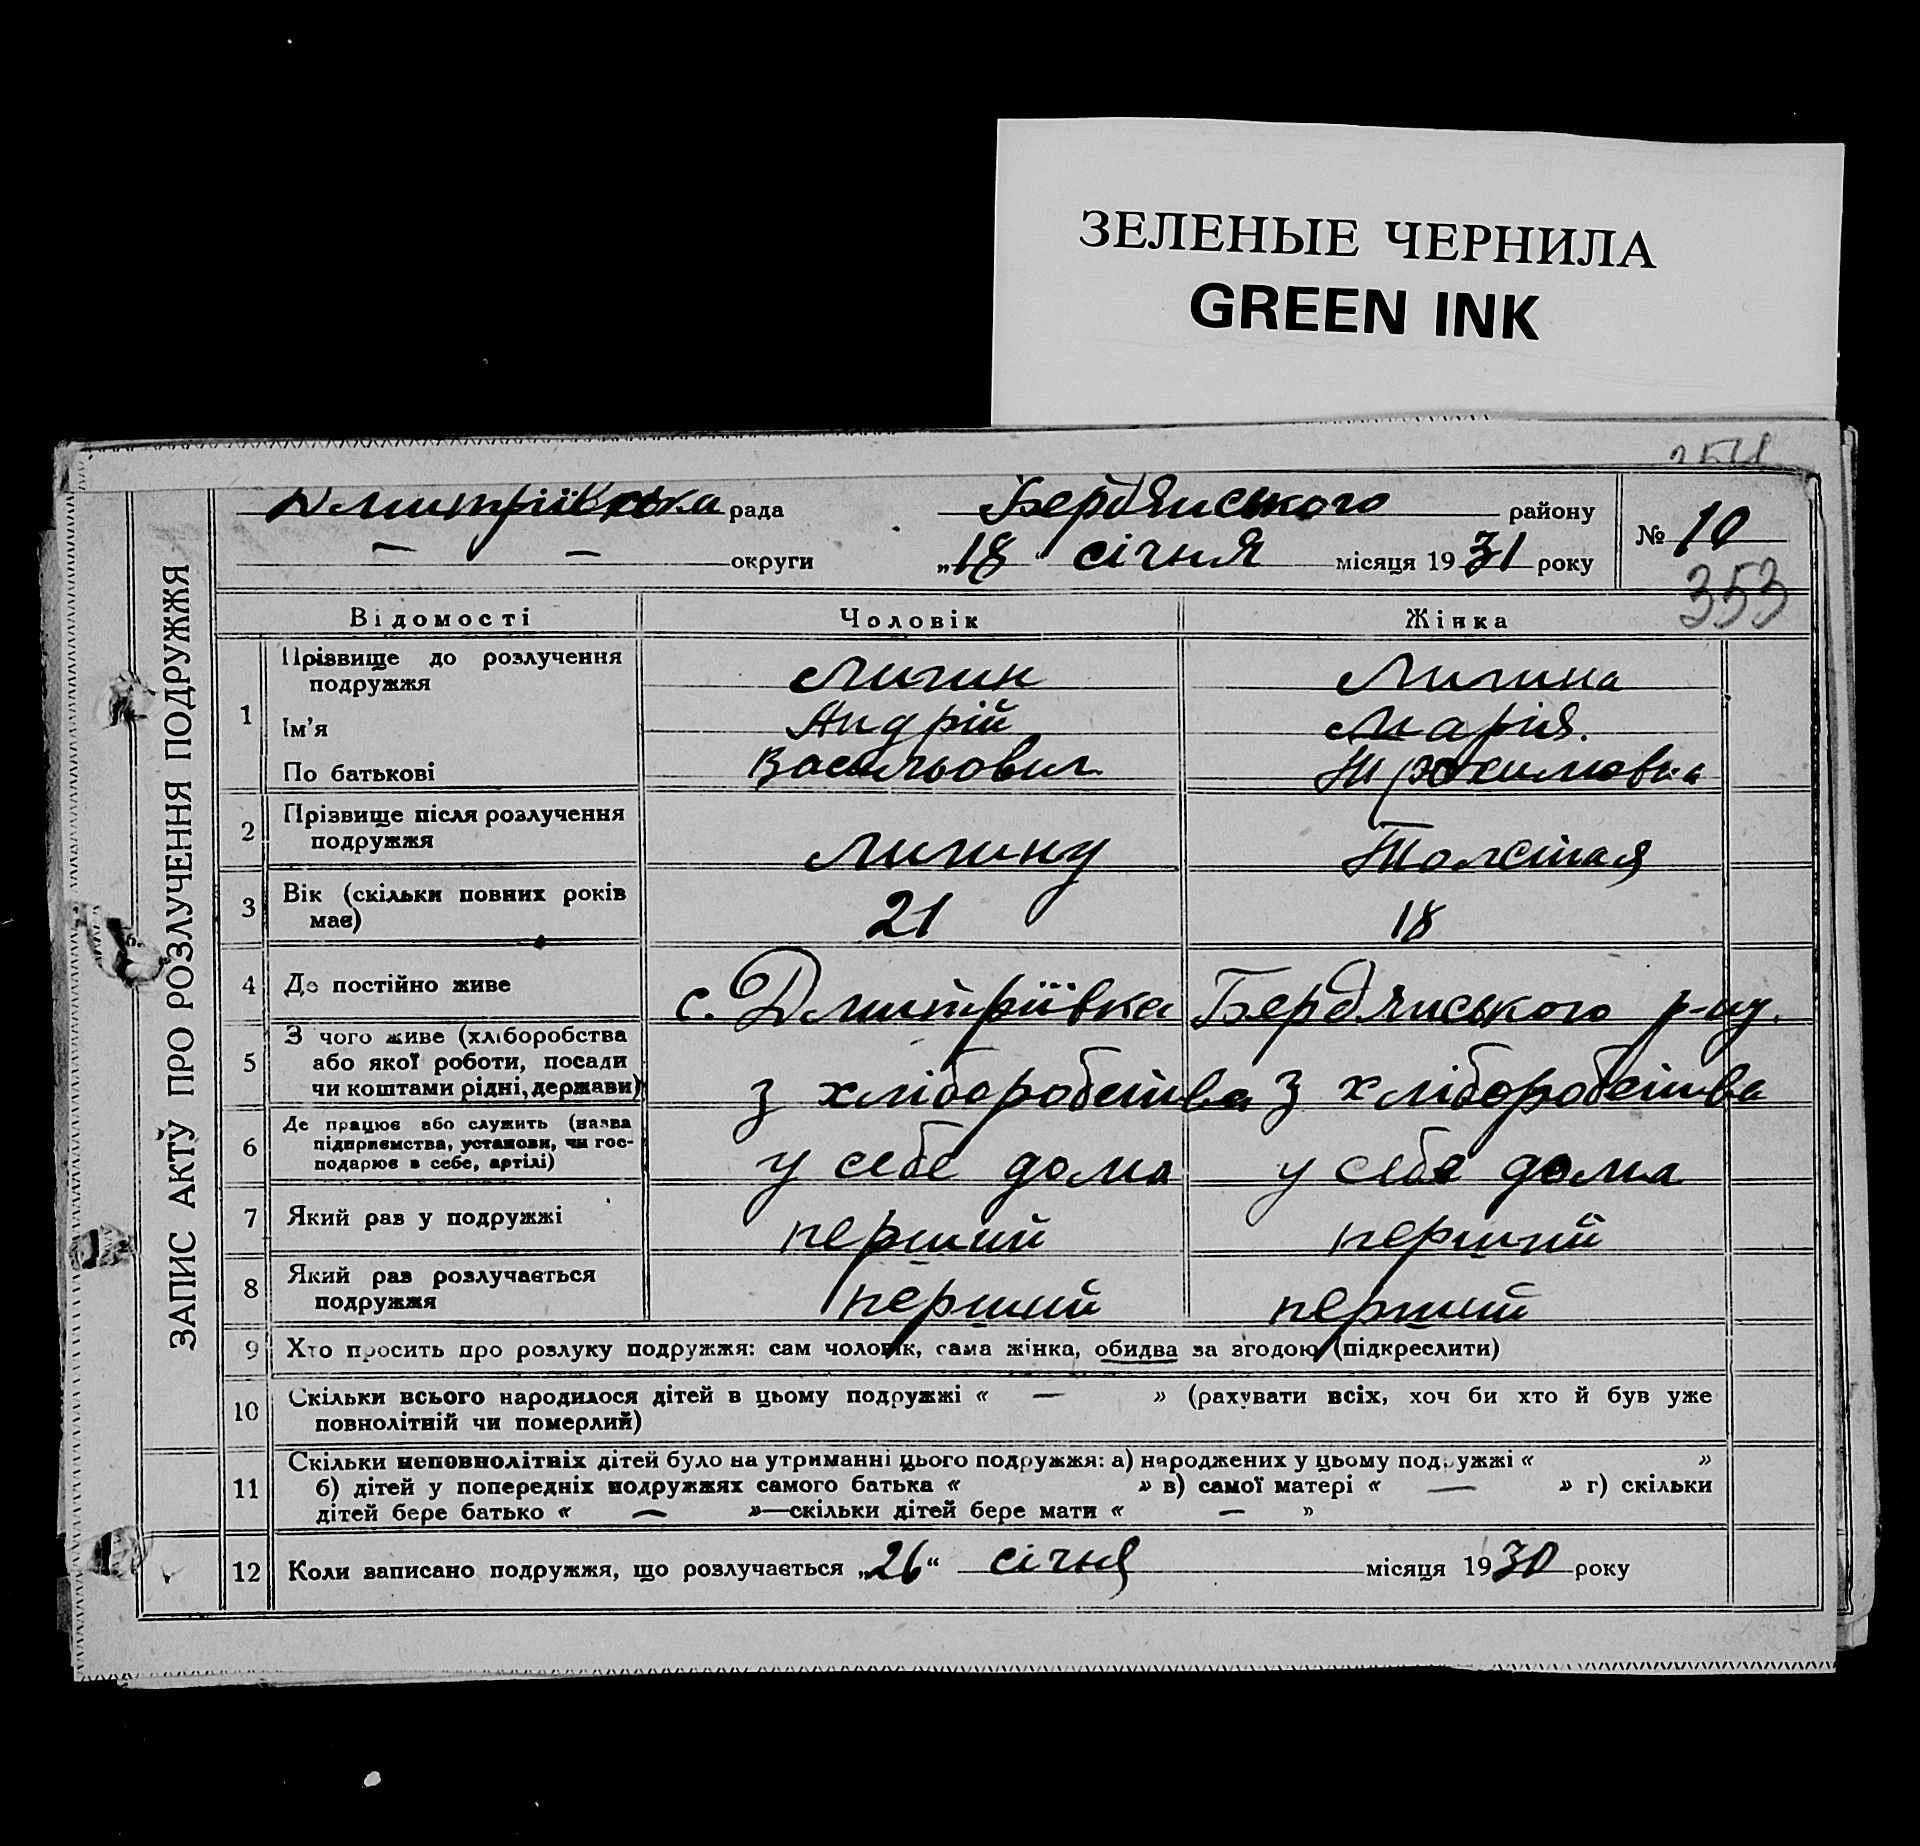 ЗЕЛЕНЫЕ ЧЕРНИЛА
GREEN INK
ЗАПИС АКТУ ПРО РОЗЛУЧЕННЯ ПОДРУЖЖЯ
Дмитріївська рада Бердянського району № 10
— — округи „18“ січня місяця 1931 року
353
Відомості Чоловік Жінка
1 Прізвище до розлучення
подружжя
Ім’я Андрій Марія.
По батькові Васильович Трохимовна
2 Прізвище після розлучення
подружжя Толстая
3 Вік (скільки повних років
має) 21 18
4 Де постійно живе с. Дмитріївка Бердянського р-ну.
5 З чого живе (хліборобства
або якої роботи, посади
чи коштами рідні, держави) з хліборобства з хліборобства
6 Де працює або служить (назва
підприємства, установи, чи гос-
подарює в себе, артілі) у себе дома у себе дома
7 Який раз у подружжі перший перший
8 Який раз розлучається
подружжя перший перший
9 Хто просить про розлуку подружжя: сам чоловік, сама жінка, обидва за згодою (підкреслити)
10 Скільки всього народилося дітей в цьому подружжі « — » (рахувати всіх, хоч би хто й був уже
повнолітній чи померлий)
11 Скільки неповнолітніх дітей було на утриманні цього подружжя: а) народжених у цьому подружжі « »
б) дітей у попередніх подружжях самого батька « » в) самої матері « — » г) скільки
дітей бере батько « — »—скільки дітей бере мати « — »
12 Коли записано подружжя, що розлучається „26“ січня місяця 1930 року